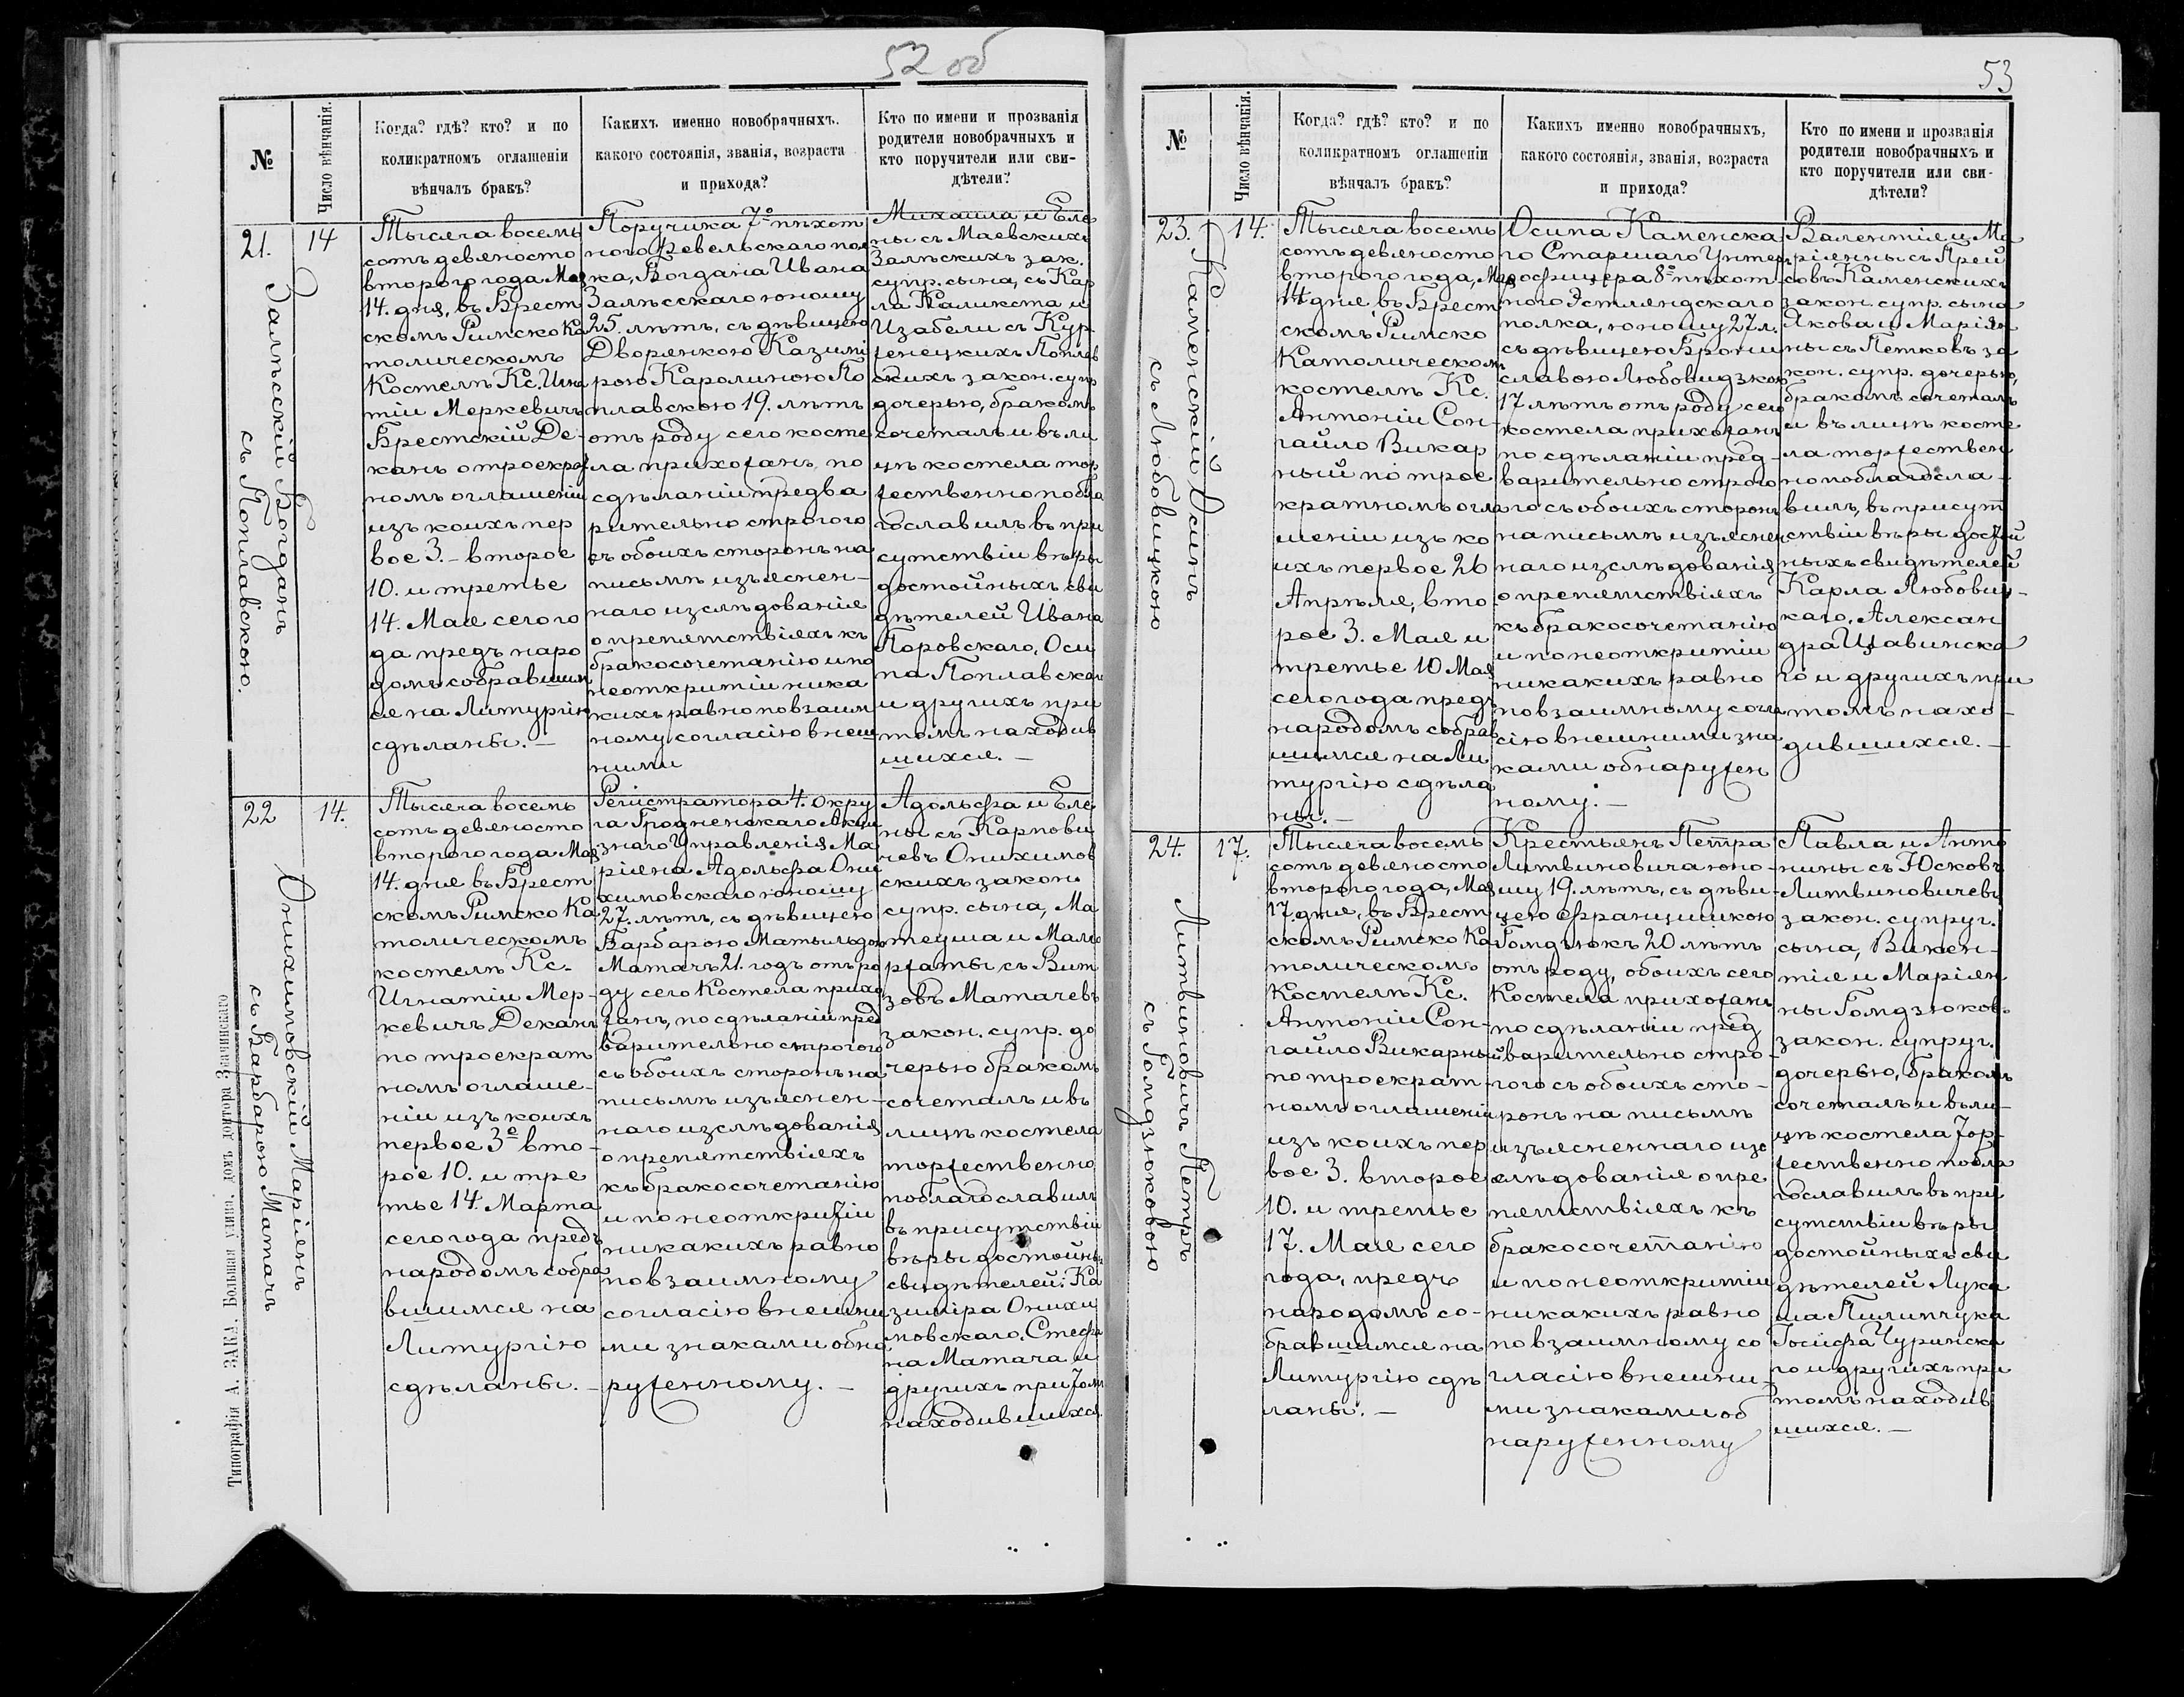 52 об
№
Число вѣнчанія.
Когда? гдѣ? кто? и по
коликратномъ оглашеніи
вѣнчалъ бракъ?
Какихъ именно новобрачныхъ.
какого состоянія, званія, возраста
и прихода?
Кто по имени и прозванія
родители новобрачныхъ и
кто поручители или сви-
дѣтели?
21.
14
Залѣсскій Богданъ
съ Поплавскою.
Тысяча восемь
сотъ девяносто
второго года Мая
14. дня, въ Брест
скомъ Римско Ка
толическомъ
Костелѣ Кс. Игна
тій Меркевичъ
Брестскій Де-
канъ о троекрат
номъ оглашеніи
изъ коихъ пер
вое 3. - второе
10. и третье
14. Мая сего го
да предъ наро
домъ собравшим
ся на Литургію
сдѣланы. -
Поручика 7º пѣхот
ного Ревельскаго пол
ка, Богдана Ивана
Залѣсскаго юношу
25. лѣтъ, съ дѣвицею
Дворянкою Казимі
рою Каролиною По
плавскою 19. лѣтъ
отъ роду сего косте
ла прихожанъ, по
сдѣланіи предва
рительно строгого
съ обоихъ сторонъ на
письмѣ изъяснен-
наго изслѣдованія
о препятствіяхъ къ
бракосочетанію и по
неоткритіи ника
кихъ равно по взаим
ному согласію внеш
ними
Михаила и Еле
ны съ Маевскихъ
Залѣскихъ зак.
супр. сына, съ Кар
ла Каликста и
Изабели съ Кур-
женецкихъ Поплав
скихъ закон. супр
дочерью, бракомъ
сочеталъ и въ ли
цѣ костела тор
жественно побла
гославилъ въ при
сутствіи вѣры
достойныхъ сви
дѣтелей Ивана
Поровскаго, Оси
па Поплавскаго
и другихъ при
томъ находив
шихся. -
22
14.
Онихимовскій Маріянъ
съ Барбарою Матачъ
Тысяча восемь
сотъ девяносто
второго года Мая
14. дня въ Брест
скомъ Римско Ка
толическомъ
костелѣ Кс.
Игнатій Мер-
кевичъ Деканъ
по троекрат
номъ оглаше-
ніи изъ коихъ
первое 3º вто-
рое 10. и тре
тье 14. Марта
сего года предъ
народомъ собра
вшимся на
Литургію
сдѣланы. -
Регистратора 4. окру
га Гродненскаго Акци
знаго Управленія Ма
ріяна Адольфа Они
химовскаго юношу
27. лѣтъ, съ дѣвицею
Барбарою Матыльдою
Матачъ 21. годъ отъ ро
ду сего Костела прихо
жанъ, по сдѣланіи пред
варительно строгого
съ обоихъ сторонъ на
письмѣ изъяснен-
наго изслѣдованія
о препятствіяхъ
къ бракосочетанію
и по неоткритіи
никакихъ равно
по взаимному
согласію внешни
ми знаками обна
руженному. -
Адольфа и Еле
ны съ Карпови
чевъ Онихимов
скихъ закон
супр. сына, Ма
теуша и Малго
ржаты съ Вит
зовъ Матачевъ
закон. супр. до
черью бракомъ
сочеталъ и въ
лицѣ костела
торжественно
поблагославилъ
въ присутствіи
вѣры достойныхъ
свидѣтелей: Ка
зиміра Онихи
мовскаго, Стефа
на Матача и
другихъ притомъ
находившихся
Типографія А. ЗАКА. Большая улица, домъ доктора Здачинскаго
53
№
Число вѣнчанія.
Когда? гдѣ? кто? и по
коликратномъ оглашеніи
вѣнчалъ бракъ?
Какихъ именно новобрачныхъ,
какого состоянія, званія, возраста
и прихода?
Кто по имени и прозванія
родители новобрачныхъ и
кто поручители или сви-
дѣтели?
23.
14.
Каменскій Осипъ
съ Любовицкою
Тысяча восемь
сотъ девяносто
второго года, Мая
14 дня въ Брест
скомъ Римско
Католическомъ
костелѣ Кс.
Антоній Сон-
гайло Викар
ный по трое
кратномъ огла
шеніи изъ ко
ихъ первое 26
Апрѣля, вто-
рое 3. Мая и
третье 10 Мая
сего года предъ
народомъ собрав
шимся на Ли
тургію сдѣла
ны. -
Осипа Каменска
го Старшаго Унтеръ
офицера 8º пѣхот
ного Эстляндскаго
полка, юношу 27 л.
съ дѣвицею Брони
славою Любовидзкою
17 лѣтъ отъ роду сего
костела прихожанъ
по сдѣланіи пред-
варительно строго
го съ обоихъ сторонъ
на письмѣ изъяснен
наго изслѣдованія
о препятствіяхъ
къ бракосочетанію
и по неоткритіи
никакихъ равно
по взаимному согла
сію внешними зна
ками обнаружен
ному. -
Валентія и Ма
ріянны съ Прей
совъ Каменскихъ
закон. супр. сына
Якова и Марiян
ны съ Петковъ за
кон. супр. дочерью,
бракомъ сочеталъ
и въ лицѣ косте
ла торжествен
но поблагосла-
вилъ, въ присут
ствіи вѣры достой
ныхъ свидѣтелей
Карла Любовиц-
каго, Алексан
дра Щавинска
го и другихъ при
томъ нахо-
дившихся. -
24.
17.
Литвиновичъ Петръ
съ Гомдзюковою
Тысяча восемь
сотъ девяносто
второго года, Мая
17. дня, въ Брест
скомъ Римско Ка
толическомъ
Костелѣ Кс.
Антоній Сон-
гайло Викарный
по троекрат-
номъ оглашеніи
изъ коихъ пер
вое 3. второе
10. и третье
17. Мая сего
года, предъ
народомъ со-
бравшимся на
Литургію сдѣ
ланы. -
Крестьянъ Петра
Литвиновича юно-
шу 19. лѣтъ, съ дѣви-
цею Францишкою
Гомдзюкъ 20 лѣтъ
отъ роду, обоихъ сего
Костела прихожанъ
по сдѣланіи пред
варительно стро-
гого съ обоихъ сто-
ронъ на письмѣ
изъясненнаго изс
лѣдованія о пре
пятствіяхъ къ
бракосочетанію
и по неоткритіи
никакихъ равно
по взаимному со
гласію внешни-
ми знаками об
наруженному
Павла и Анто
нины съ Юсковъ
Литвиновичевъ
закон. супруг.
сына, Викен-
тія и Маріян
ны Гомдзюков.
закон. супруг.
дочерью, бракомъ
сочеталъ и въ ли-
цѣ костела тор-
жественно побла
гославилъ въ при
сутствіи вѣры
достойныхъ сви
дѣтелей Лука
ша Пилипчука
Іосифа Чуринска
го и другихъ при
томъ находив
шихся. -